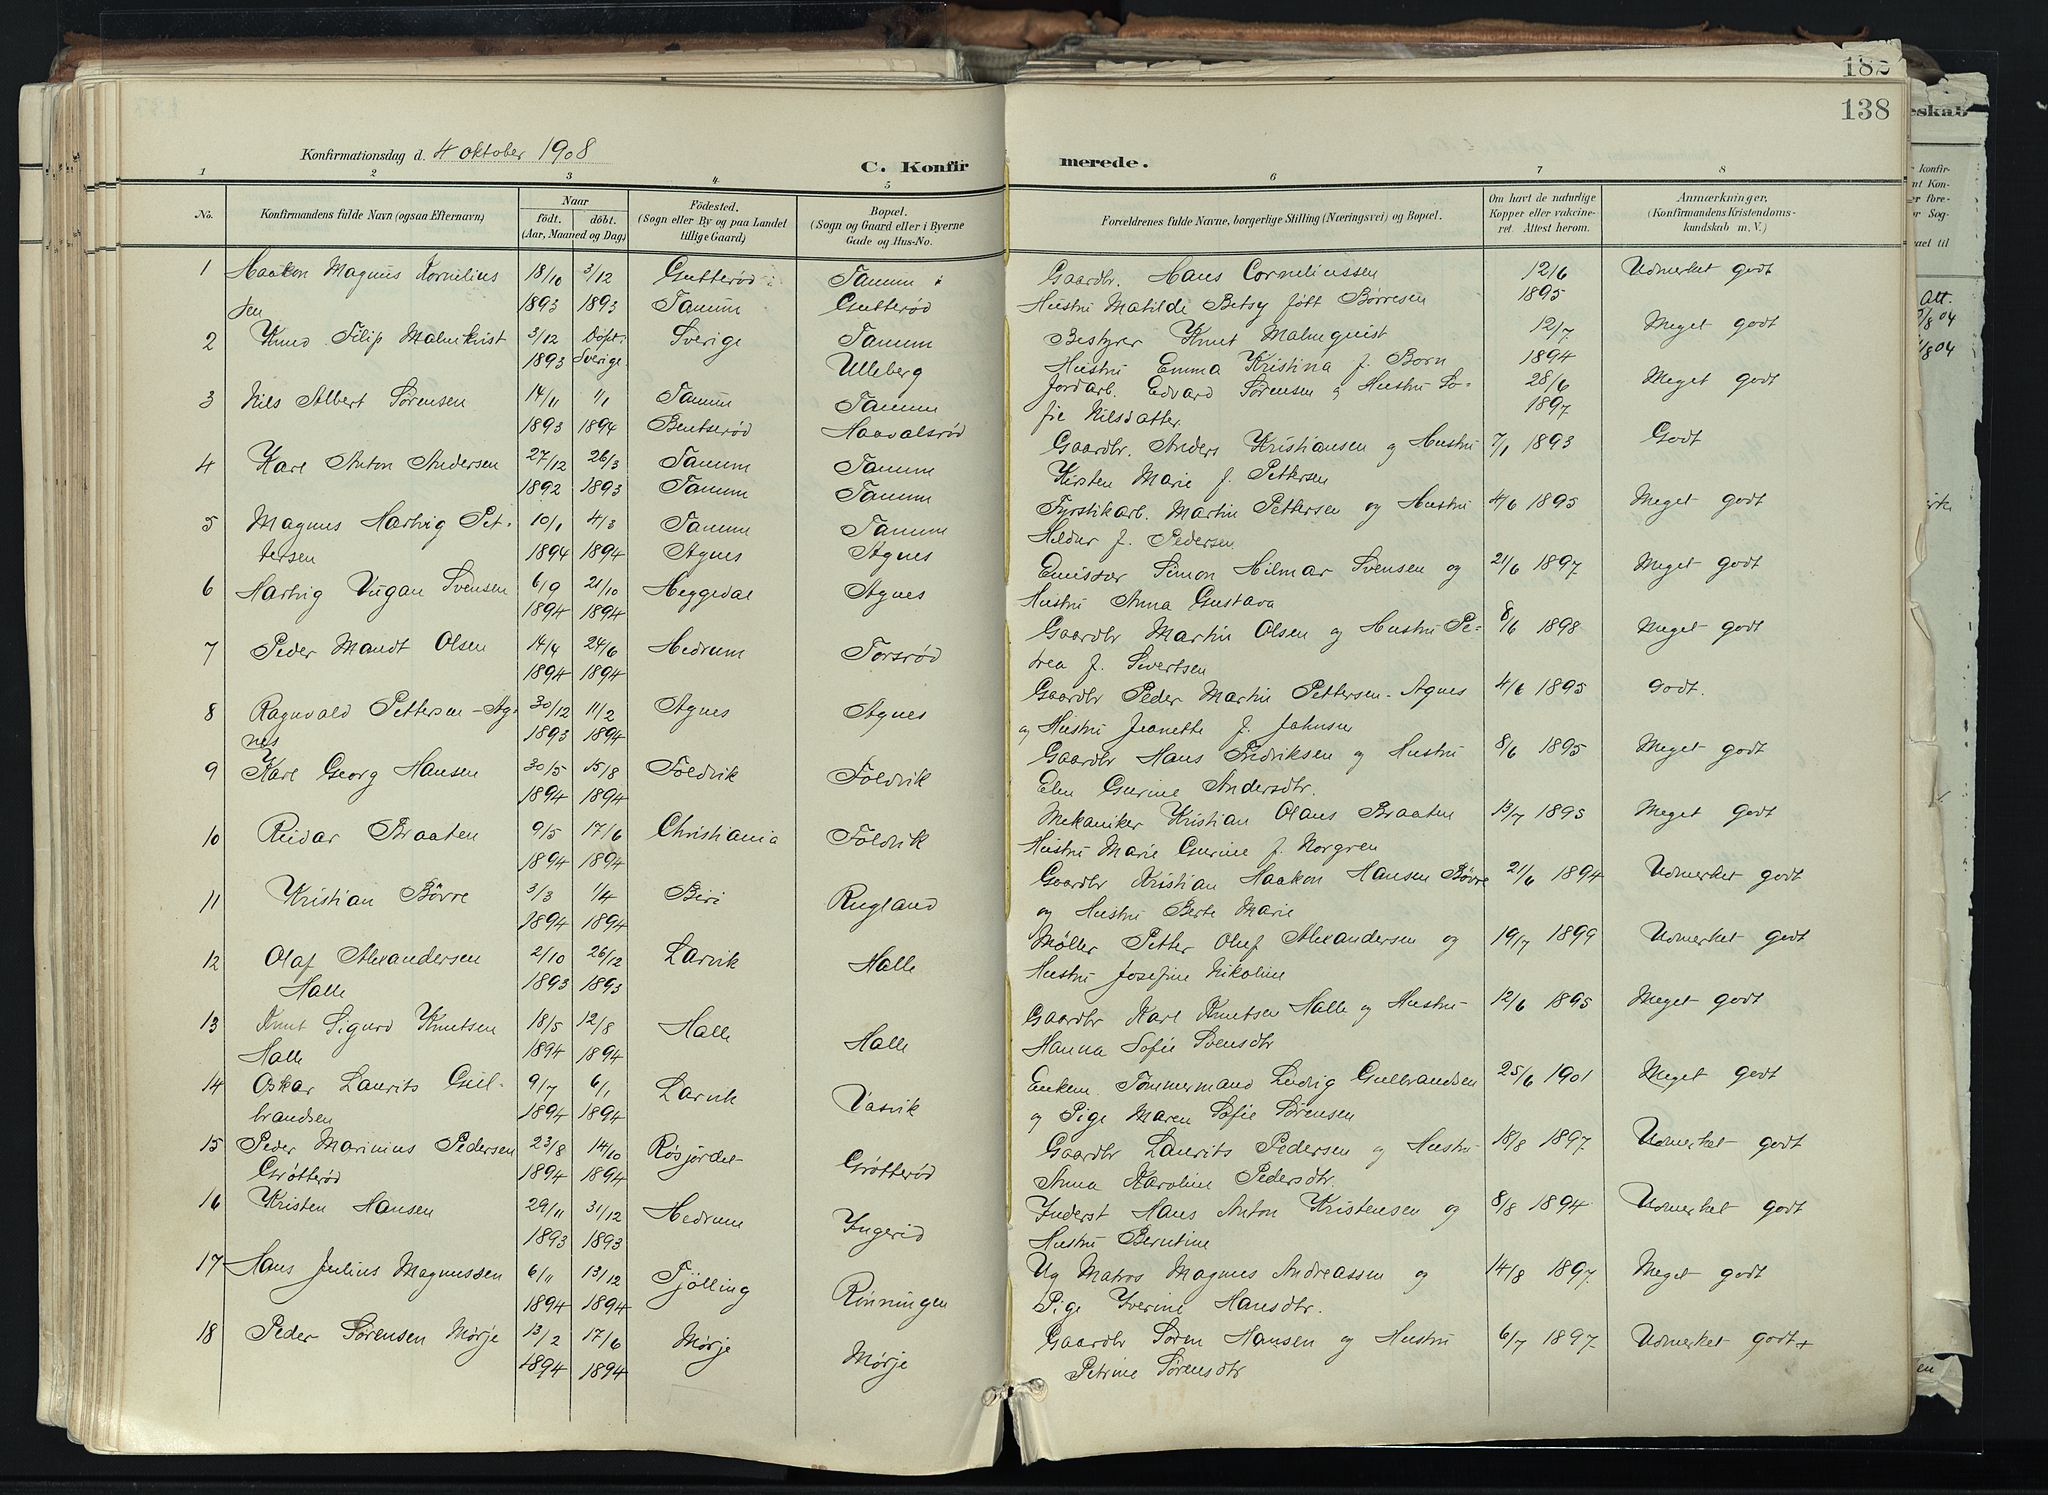 182
138
Konfirmationsdag d. 4 Oktober 1908
C. Konfirmerede.
1 2 3 4 5 6 7 8
No. Konfirmandens fulde Navn (ogsaa Efternavn) Naar født. døbt. (Aar, Maaned og Dag) Fødested. (Sogn eller By og paa Landet tillige Gaard) Bopæl. (Sogn og Gaard eller i Byerne Gade og Hus-No. Forældrenes fulde Navne, borgerlige Stilling (Næringsvei) og Bopæl. Om havt de naturlige Kopper eller vaccineret. Attest herom. Anmærkninger. (Konfirmandens Kristendomskundskab m. V.)
1 Haakon Magnus Kornelius 18/10 3/12 Gutterød i Tanum i Gaardbr. Hans Corneliussen 12/6 Udmerket godt
sen 1893 1893 Tanum Gutterød Hustru Matilde Betsy født Børresen 1895
2 Knud Filip Malmkvist 3/12 Døpt Sverige Tanum Bestyrer Knut Malmquist 12/7 Meget godt
1893 Sverige. Ulleberg Hustru Emma Kristina f. Born 1894
3 Nils Albert Sørensen 14/11 1/1 Tanum Tanum Jordarb. Edvard Sørensen og Hustru So- 28/6 Meget godt
1893 1894 Bentserød Haavalsrød fie Nilsdatter 1897
4 Karl Anton Andersen 27/12 26/3 Tanum Tanum Gaardbr. Anders Kristiansen og Hustru 7/1 1893 Godt
1892 1893 Tanum Tanum Kirsten Marie f. Pettersen
5 Magnus Hartvig Pet- 10/1 4/3 Tanum Tanum Fyrstikarb. Martin Pettersen og Hustru 4/6 1895 Meget godt
tersen 1894 1894 Agnes Agnes Hildur f. Pedersen
6 Hartvig Vugan Svensen 6/9 21/10 Heggedal Agnes Emissær Simon Hilmar Svensen og 21/6 1897 Meget godt
1894 1894 Hustru Anna Gustava
7 Peder Mandt Olsen 14/4 24/6 Hedrum Torsrød Gaardbr Martin Olsen og Hustru Pe- 8/6 1898 Meget godt
1894 1894 trea f. Sivertsen
8 Ragnvald Pettersen-Ag- 30/12 11/2 Agnes Agnes Gaardbr Peder Martin Pettersen-Agnes 4/6 1895 Godt.
nes 1893 1894 og Hustru Jeanette f. Johnsen
9 Karl Georg Hansen 30/5 15/8 Foldvik Foldvik Gaardbr Hans Fredriksen og Hustru 8/6 1895 Meget godt
1894 1894 Elen Gurine Andersdtr.
10 Reidar Braaten 9/5 17/6 Christiania Foldvik Mekaniker Kristian Olaus Braaten 13/7 1895 Meget godt
1894 1894 Hustru Marie Gurine f. Norgren
11 Kristian Børre 3/3 1/4 Biri Rugland Gaardbr Kristian Haakon Hansen Børre 21/6 1894 Udmerket godt
1894 1894 og Hustru Berte Marie
12 Olaf Alexandersen 2/10 26/12 Larvik Halle Møller Petter Oluf Alexandersen og 19/7 1899 Udmerket godt
Halle 1893 1893 Hustru Josefine Nikoline
13 Knut Sigurd Knutsen 18/5 12/8 Halle Halle Gaardbr Karl Knutsen Halle og Hustru 12/6 1895 Meget godt
Halle 1894 1894 Hanna Sofie Svensdtr
14 Oskar Laurits Gul- 9/7 6/1 Larvik Vasvik Enkem. Tømmermand Ludvig Gulbrandsen 25/6 1901 Meget godt
brandsen 1894 1894 og Pige Maren Sofie Sørensen
15 Peder Marinius Pedersen 23/8 14/10 Røsjordet Grøtterød Gaardbr Laurits Pedersen og Hustru 18/8 1897 Udmerket godt
Grøtterød 1894 1894 Anna Karoline Pedersdtr.
16 Kristen Hansen 29/11 31/12 Hedrum Yngerid Inderst Hans Anton Kristensen og 8/8 1894 Udmerket godt
1893 1893 Hustru Berntine
17 Hans Julius Magnussen 6/11 13/12 Tjølling Rønningen Ug Matros Magnus Andreassen og 14/8 1897 Meget godt
1894 1894 Pige Iverine Hansdtr.
18 Peder Sørensen Mørje 13/2 17/6 Mørje Mørje Gaardbr Søren Hansen og Hustru 6/7 1897 Udmerket godt +
1894 1894 Petrine Sørensdtr